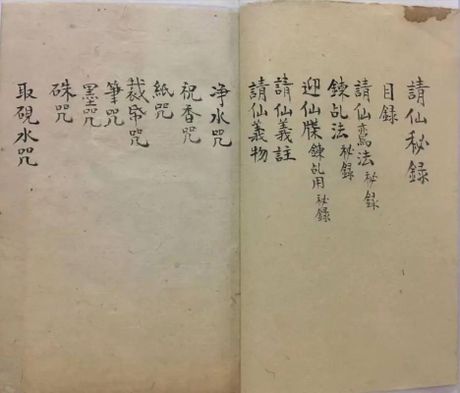 請仙秘録
目録
請仙鸞法秘録
鍊乩法秘録
迎仙牒鍊乩用秘録
請仙義註
請仙義物
淨水咒
祝香咒
紙咒
裁帋咒
筆咒
墨咒
硃咒
取硯水咒